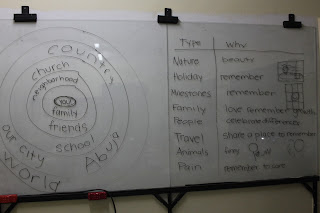 country
church
neighborhood
you
family
friends
school
our city
Abuja
world
Type Why
Nature beauty
Holiday remember
Milestones remember
Family love remember
People celebrate differences
Travel share a place to remember
Animals funny
Plain remember to care